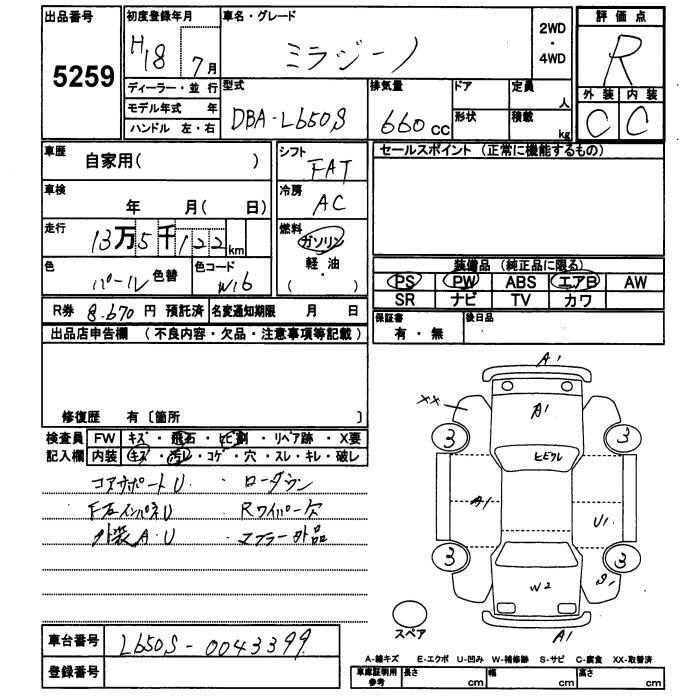 出品番号
5259
初度登録年月
H18 7月
車名・グレード
ミラジーノ
2WD
・
4WD
評価点
R
外装 内装
C C
ディーラー・並行
モデル年式 年
ハンドル 左・右
型式
DBA-L650S
排気量
660 cc
ドア
形状
定員
人
積載
kg
車歴
自家用( )
シフト
FAT
車検
年 月( 日)
冷房
AC
走行
13万5千122km
燃料
ガソリン
軽・油
( )
色
パール 色替
色コード
W16
セールスポイント (正常に機能するもの)
装備品 (純正品に限る)
PS PW ABS エアB AW
SR ナビ TV カワ
R券 8.670 円 預託済 名変通知期限 月 日
保証書
有・無
後日品
出品店申告欄 (不良内容・欠品・注意事項等記載)
修復歴 有〔箇所
検査員
記入欄
FW キズ・飛石・ヒビ割・リペア跡・X要
内装 キズ・汚レ・コゲ・穴・スレ・キレ・破レ
コアサポートU. ・ローダウン
F左インパネU ・Rワイパー欠
外装A.U ・マフラー外品
A1
XX
A1
3
3
ヒビワレ
A1
U1
3
3
W2
S1
A1
スペア
車台番号
L650S-0043399
登録番号
A-線キズ E-エクボ U-凹み W-補修跡 S-サビ C-腐食 XX-取替済
車庫証明用
参考
長さ cm
幅 cm
高さ cm